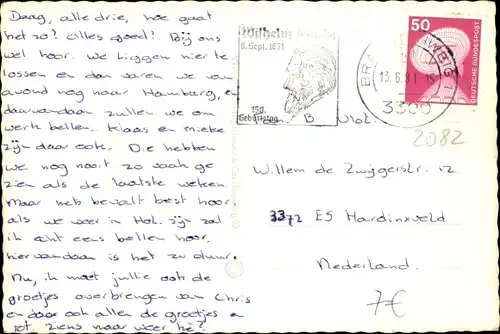 Daag, alle drie, hoe gaat
het zo? Alles goed? Bij ons
wel hoor. We liggen hier te
lossen en dan varen we van
avond nog naar Hamburg, en
daarvandaan zullen we om
werk bellen. Klaas en mieke
zijn daar ook. Die hebben
we nog nooit zo vaak ge
zien als de laatste weken.
Maar het bevalt best hoor.
als we weer in Hol. zijn zal
ik echt eens bellen hoor.
hier vandaan is het zo duur.
Nu, ik moet jullie ook de
groetjes overbrengen van Chris
en daar ook allen de groetjes en
tot ziens maar weer hè?
Wilhelm
8. Sept. 1831
150.
Geburtstag
BRAUNSCHWEIG
13.6.81
3300
50
DEUTSCHE BUNDESPOST
2082
B
Willem de Zwijgerstr. 12
3372 ES Hardinxveld
Nederland.
7€